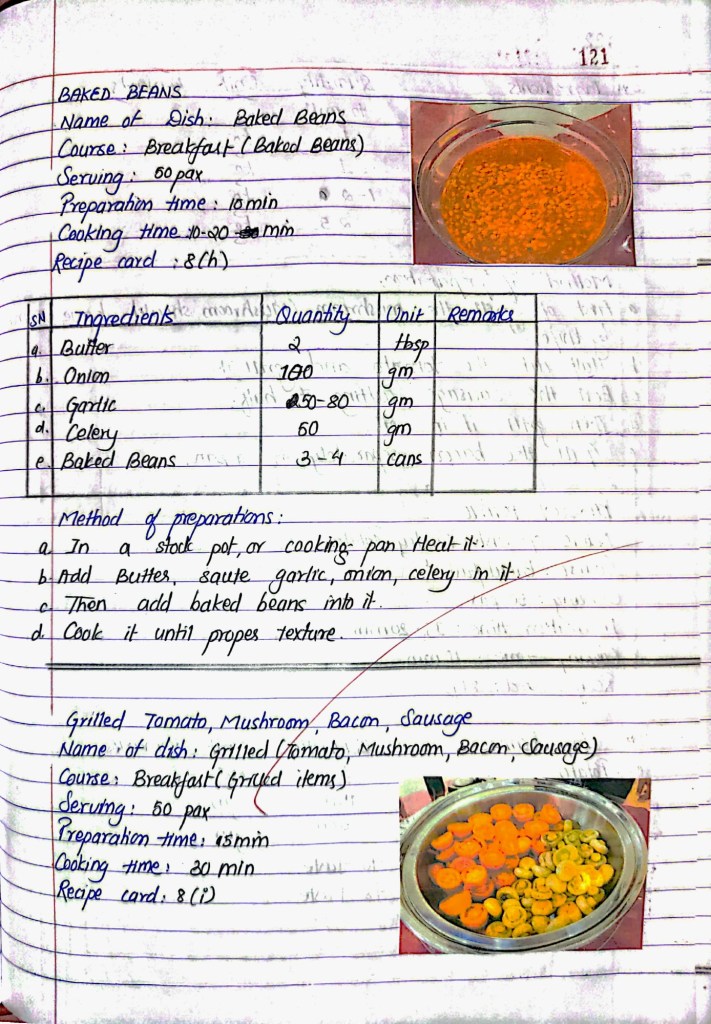 121
BAKED BEANS
Name of Dish: Baked Beans
Course: Breakfast (Baked Beans)
Serving: 50 pax
Preparation time: 10 min
Cooking time: 10-20 min
Recipe card: 8(h)
SN Ingredients Quantity Unit Remarks
a. Butter 2 tbsp
b. Onion 100 gm
c. Garlic 50-80 gm
d. Celery 50 gm
e. Baked Beans 3-4 cans
Method of preparations:
a. In a stock pot, or cooking pan, Heat it.
b. Add Butter, saute garlic, onion, celery in it.
c. Then add baked beans into it.
d. Cook it until proper texture.
Grilled Tomato, Mushroom, Bacon, Sausage
Name of dish: Grilled (Tomato, Mushroom, Bacon, Sausage)
Course: Breakfast (Grilled items)
Serving: 50 pax
Preparation time: 15 min
Cooking time: 30 min
Recipe card: 8(i)